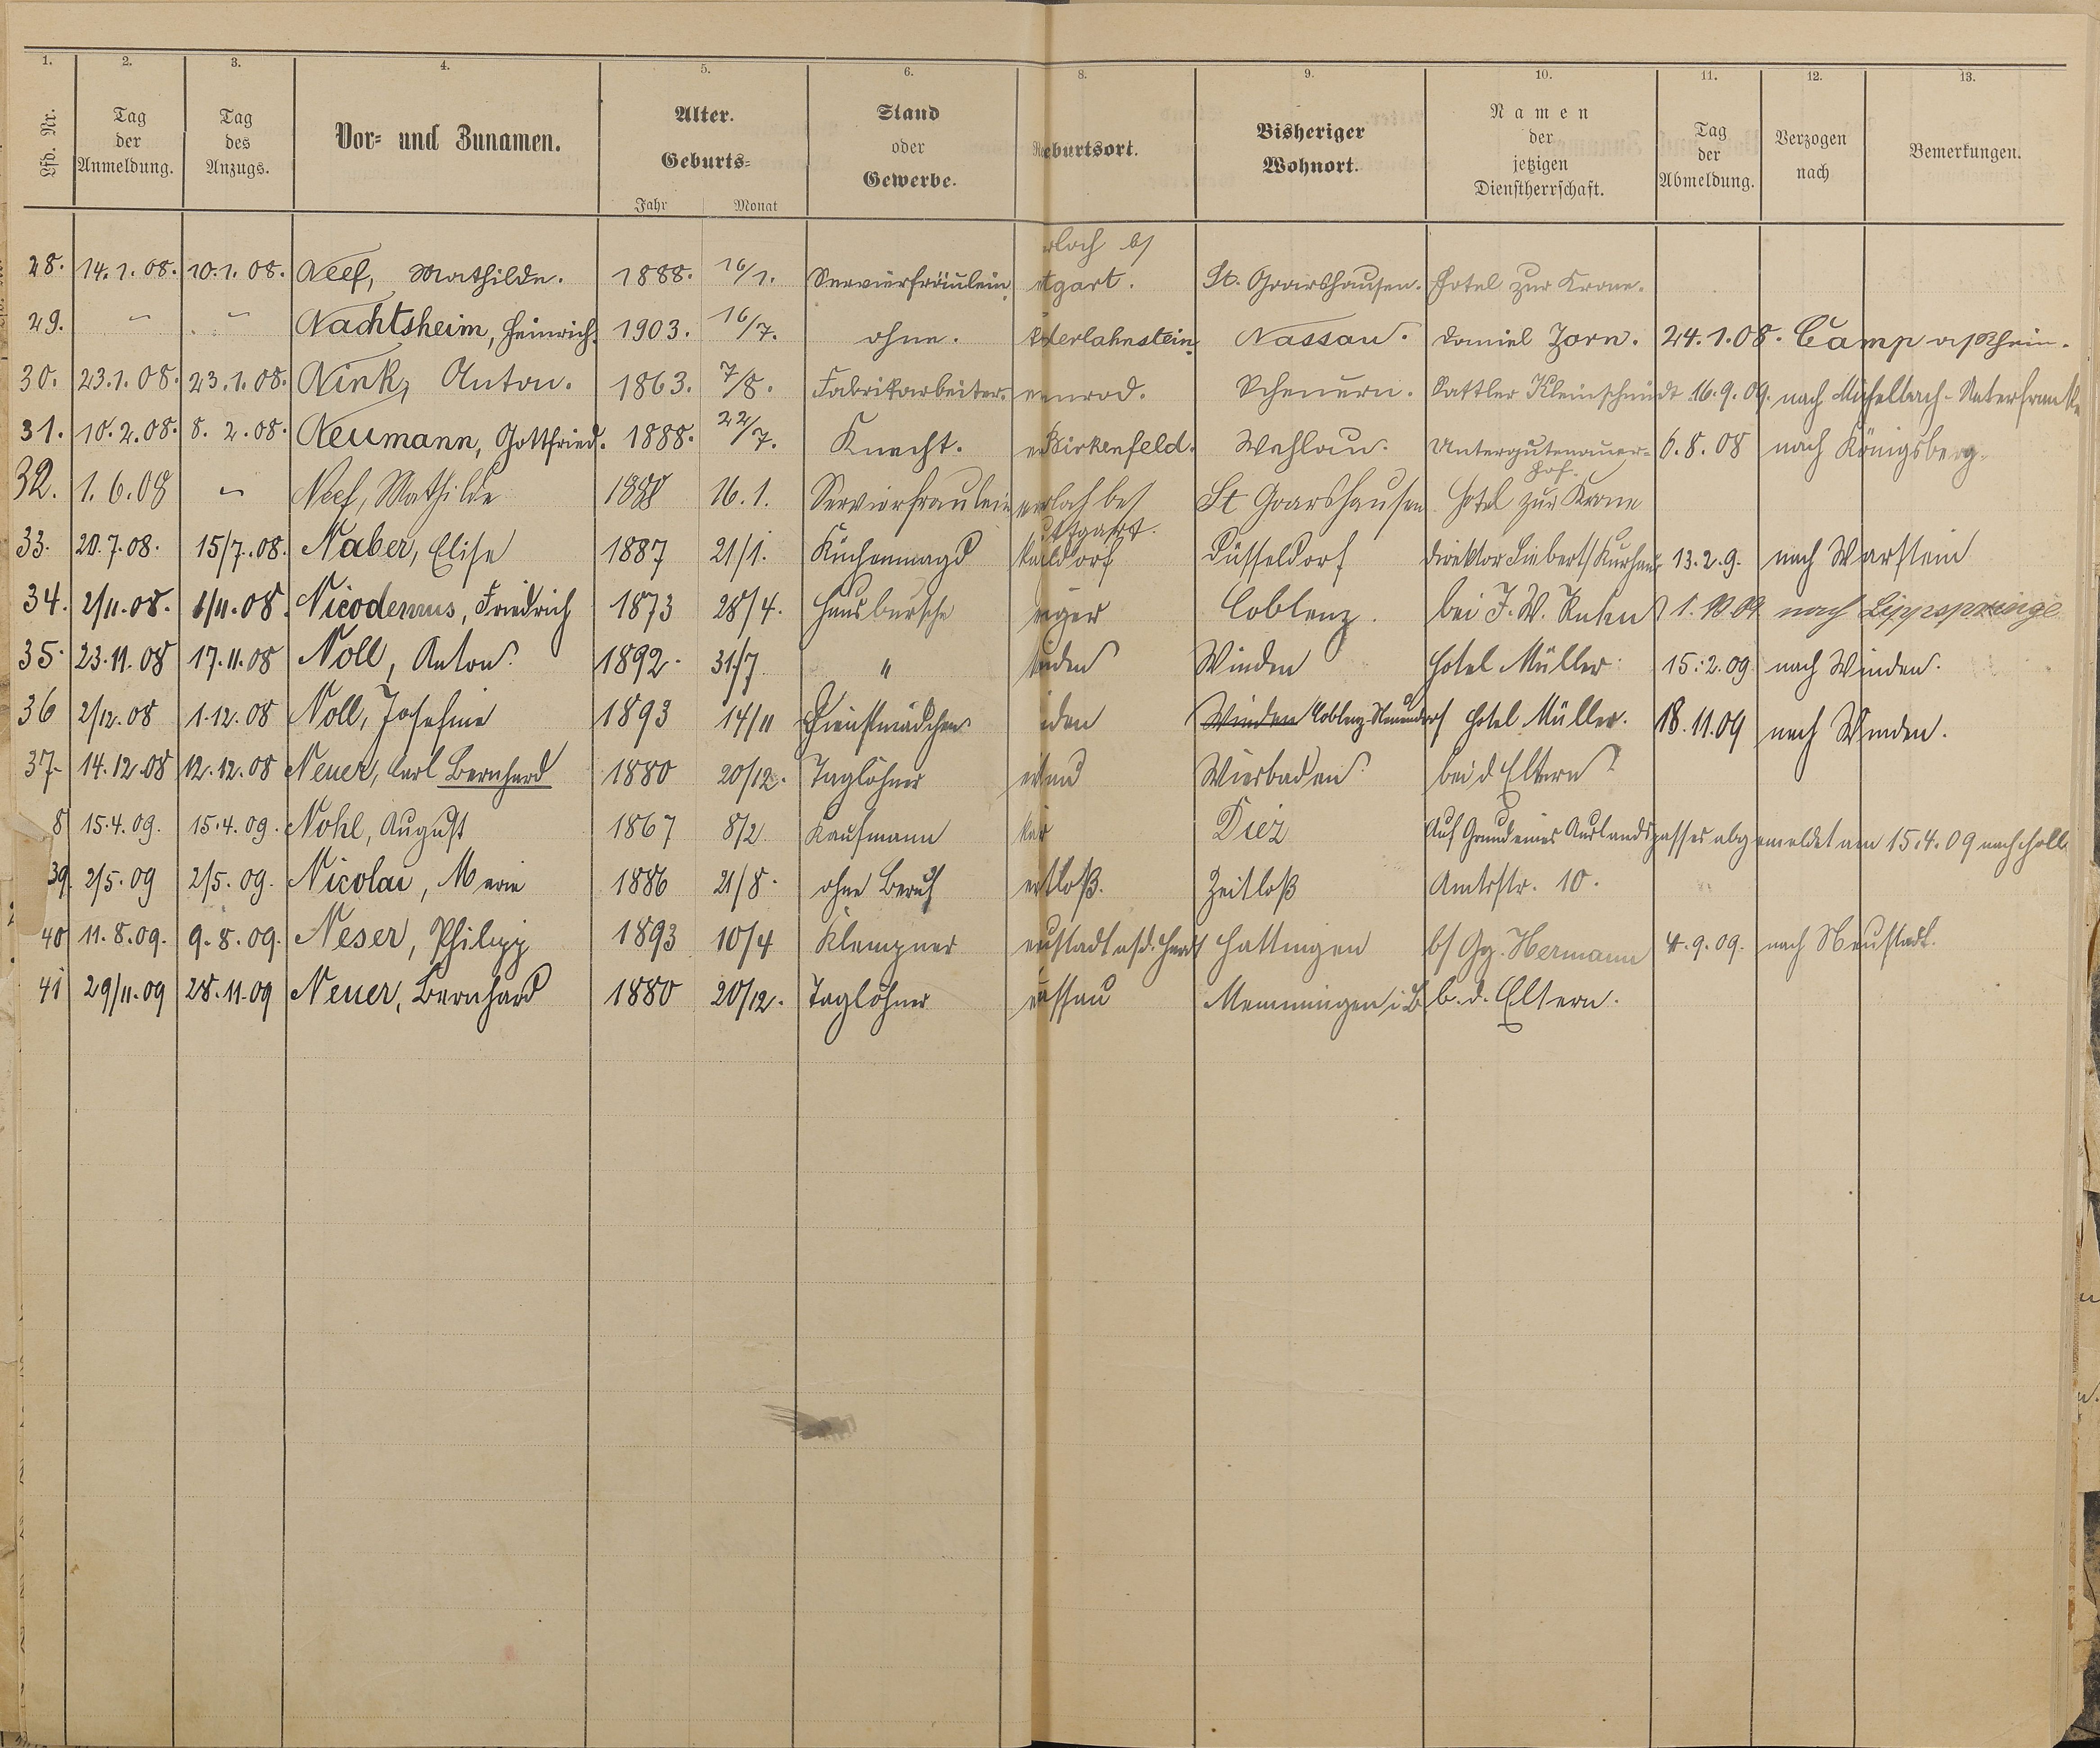 1. 2. 3. 4. 5. 6. 8. 9. 10. 11. 12. 13.
Lfd. Nr. Tag der Anmeldung. Tag des Anzugs. Vor= und Zunamen. Alter. Geburts= Jahr Monat Stand oder Gewerbe. Geburtsort. Bisheriger Wohnort. Namen der jetzigen Dienstherrschaft. Tag der Abmeldung. Verzogen nach Bemerkungen.
rloch b/
28. 14.1.08. 10.1.08. Neef, Mathilde. 1888. 16/1. Servierfräulein. tgart. St. Goarshausen. Hotel zur Krone.
29. " " Nachtsheim, Heinrich. 1903. 16/7. ohne. derlahnstein. Nassau. Daniel Zorn. 24.1.08. Camp a/Rhein.
30. 23.1.08. 23.1.08. Nink, Anton. 1863. 7/8. Fabrikarbeiter. enrod. Scheuern. Sattler Kleinschmidt 16.9.09. nach Michelbach-Unterfranken
31. 10.2.08. 8.2.08. Neumann, Gottfried. 1888. 22/7. Knecht. Birkenfeld. Wehlau. Untergutenauer-
hof. 6.8.08 nach Königsberg.
32. 1.6.08 " Neef, Mathilde 1888 16.1. Servierfraulein erlach be/ St Goarshausen Hotel zur Krone
uttgart.
33. 20.7.08. 15/7.08. Naber, Elise 1887 21/1. Küchenmagd dorf Düsseldorf Direktor Liebert/Kurhaus 13.2.9. nach Warstein
34. 2/11.08. 1/11.08. Nicodemus, Friedrich 1873 28/4. Hausbursche Coblenz. bei J. W. Kuhn 1.12.09 nach Lippspringe
35. 23.11.08 17.11.08 Noll, Anton. 1892. 31/7. " nden Winden Hotel Müller. 15.2.09 nach Winden.
36 2/12.08 1.12.08 Noll, Josefine 1893 14/11 Dienstmädchen den Winden Coblenz-Neuendorf Hotel Müller. 18.11.09 nach Winden.
37. 14.12.08 12.12.08 Neuer, Carl Bernhard 1880 20/12. Taglöhner Wiesbaden. bei d Eltern
8 15.4.09. 15.4.09. Nohl, August 1867 8/2. Kaufmann Diez Auf Grund eines Auslandspasses abgemeldet am 15.4.09 nach Holl.
39. 2/5.09 2/5.09. Nicolai, Marie 1886 21/8. ohne Beruf tloß. Zeitloß Amtsstr. 10.
40 11.8.09. 9.8.09. Neser, Philipp 1893 10/4 Klempner eustadt a/d. Hardt Hattingen b/ Gg. Hermann 4.9.09. nach Neustadt.
41 29/11.09 28.11.09 Neuer, Bernhard 1880 20/12. Taglöhner assau Memmingen i.B b. d. Eltern.